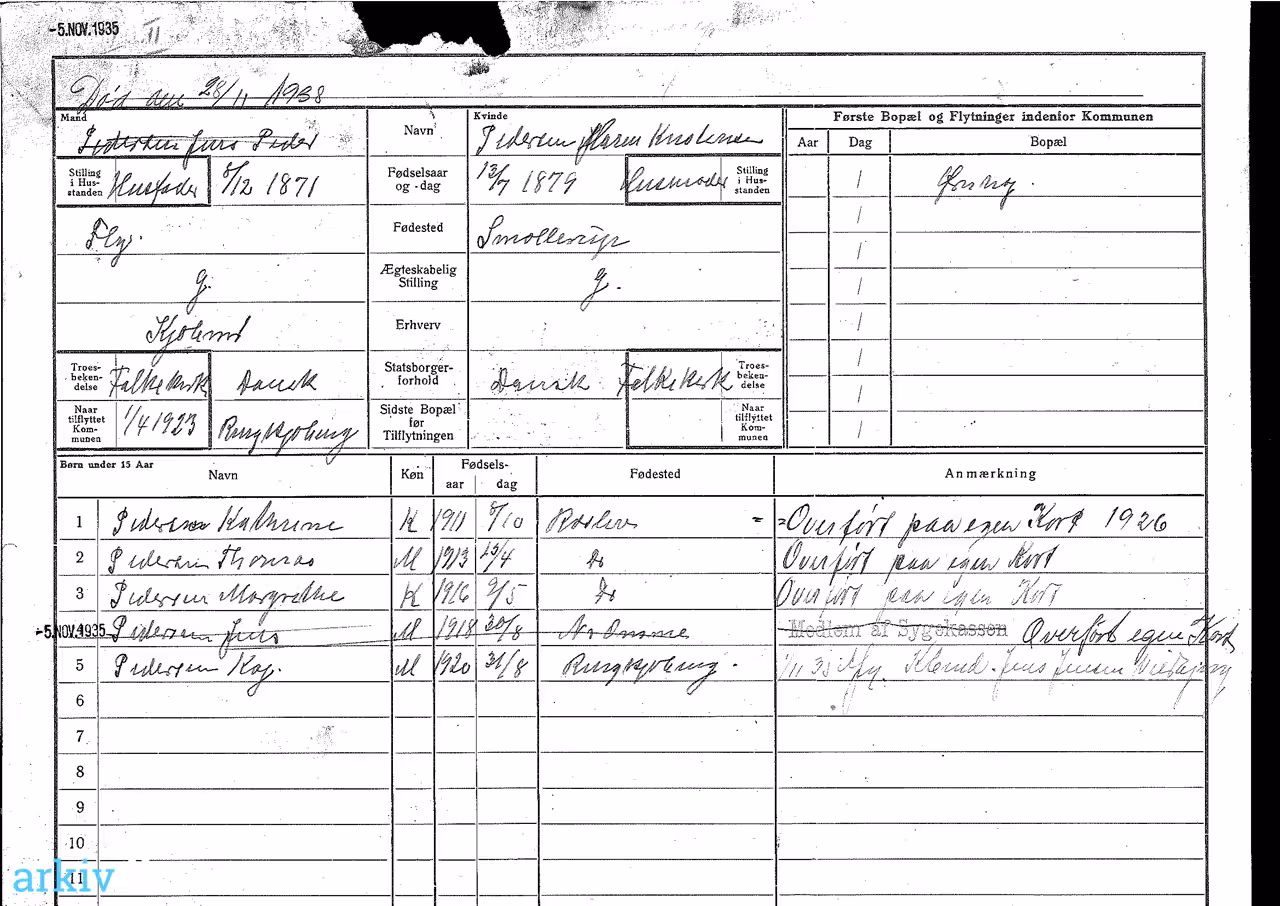 -5.NOV.1935 II
Død den 28/11 1938
Mand
Pedersen Jens Peder
Navn
Kvinde
Pedersen Maren Kristensen
Første Bopæl og Flytninger indenfor Kommunen
Aar Dag Bopæl
Stilling i Hus-standen Husfader 8/12 1871
Fødselsaar og -dag
13/7 1879 Husmoder Stilling i Hus-standen
Fly.
Fødested
Smollerup
g.
Ægteskabelig Stilling
g.
Erhverv
Troes-beken-delse Folkekirk Dansk
Statsborger-forhold
Dansk Folkekirk Troes-beken-delse
Naar tilflyttet Kom-munen 1/4 1923 Ringkjøbing
Sidste Bopæl før Tilflytningen
Naar tilflyttet Kom-munen
Børn under 15 Aar
Navn Køn Fødsels-aar dag Fødested Anmærkning
1 Pedersen Kathrine K 1911 8/10 = =Overført paa egen Kort 1926
2 Pedersen Thomas M 1913 13/4 Do Overført paa egen Kort
3 Pedersen Margrethe K 1916 9/5 Do Overført paa egen Kort
-5.NOV.1935 4 Pedersen Jens M 1918 30/8 Nr Omme Medlem af Sygekassen Overført egen Kort
5 Pedersen Kaj. M 1920 31/8 Ringkjøbing. 1/11 35 Jens Jensen
6
7
8
9
10
11
arkiv